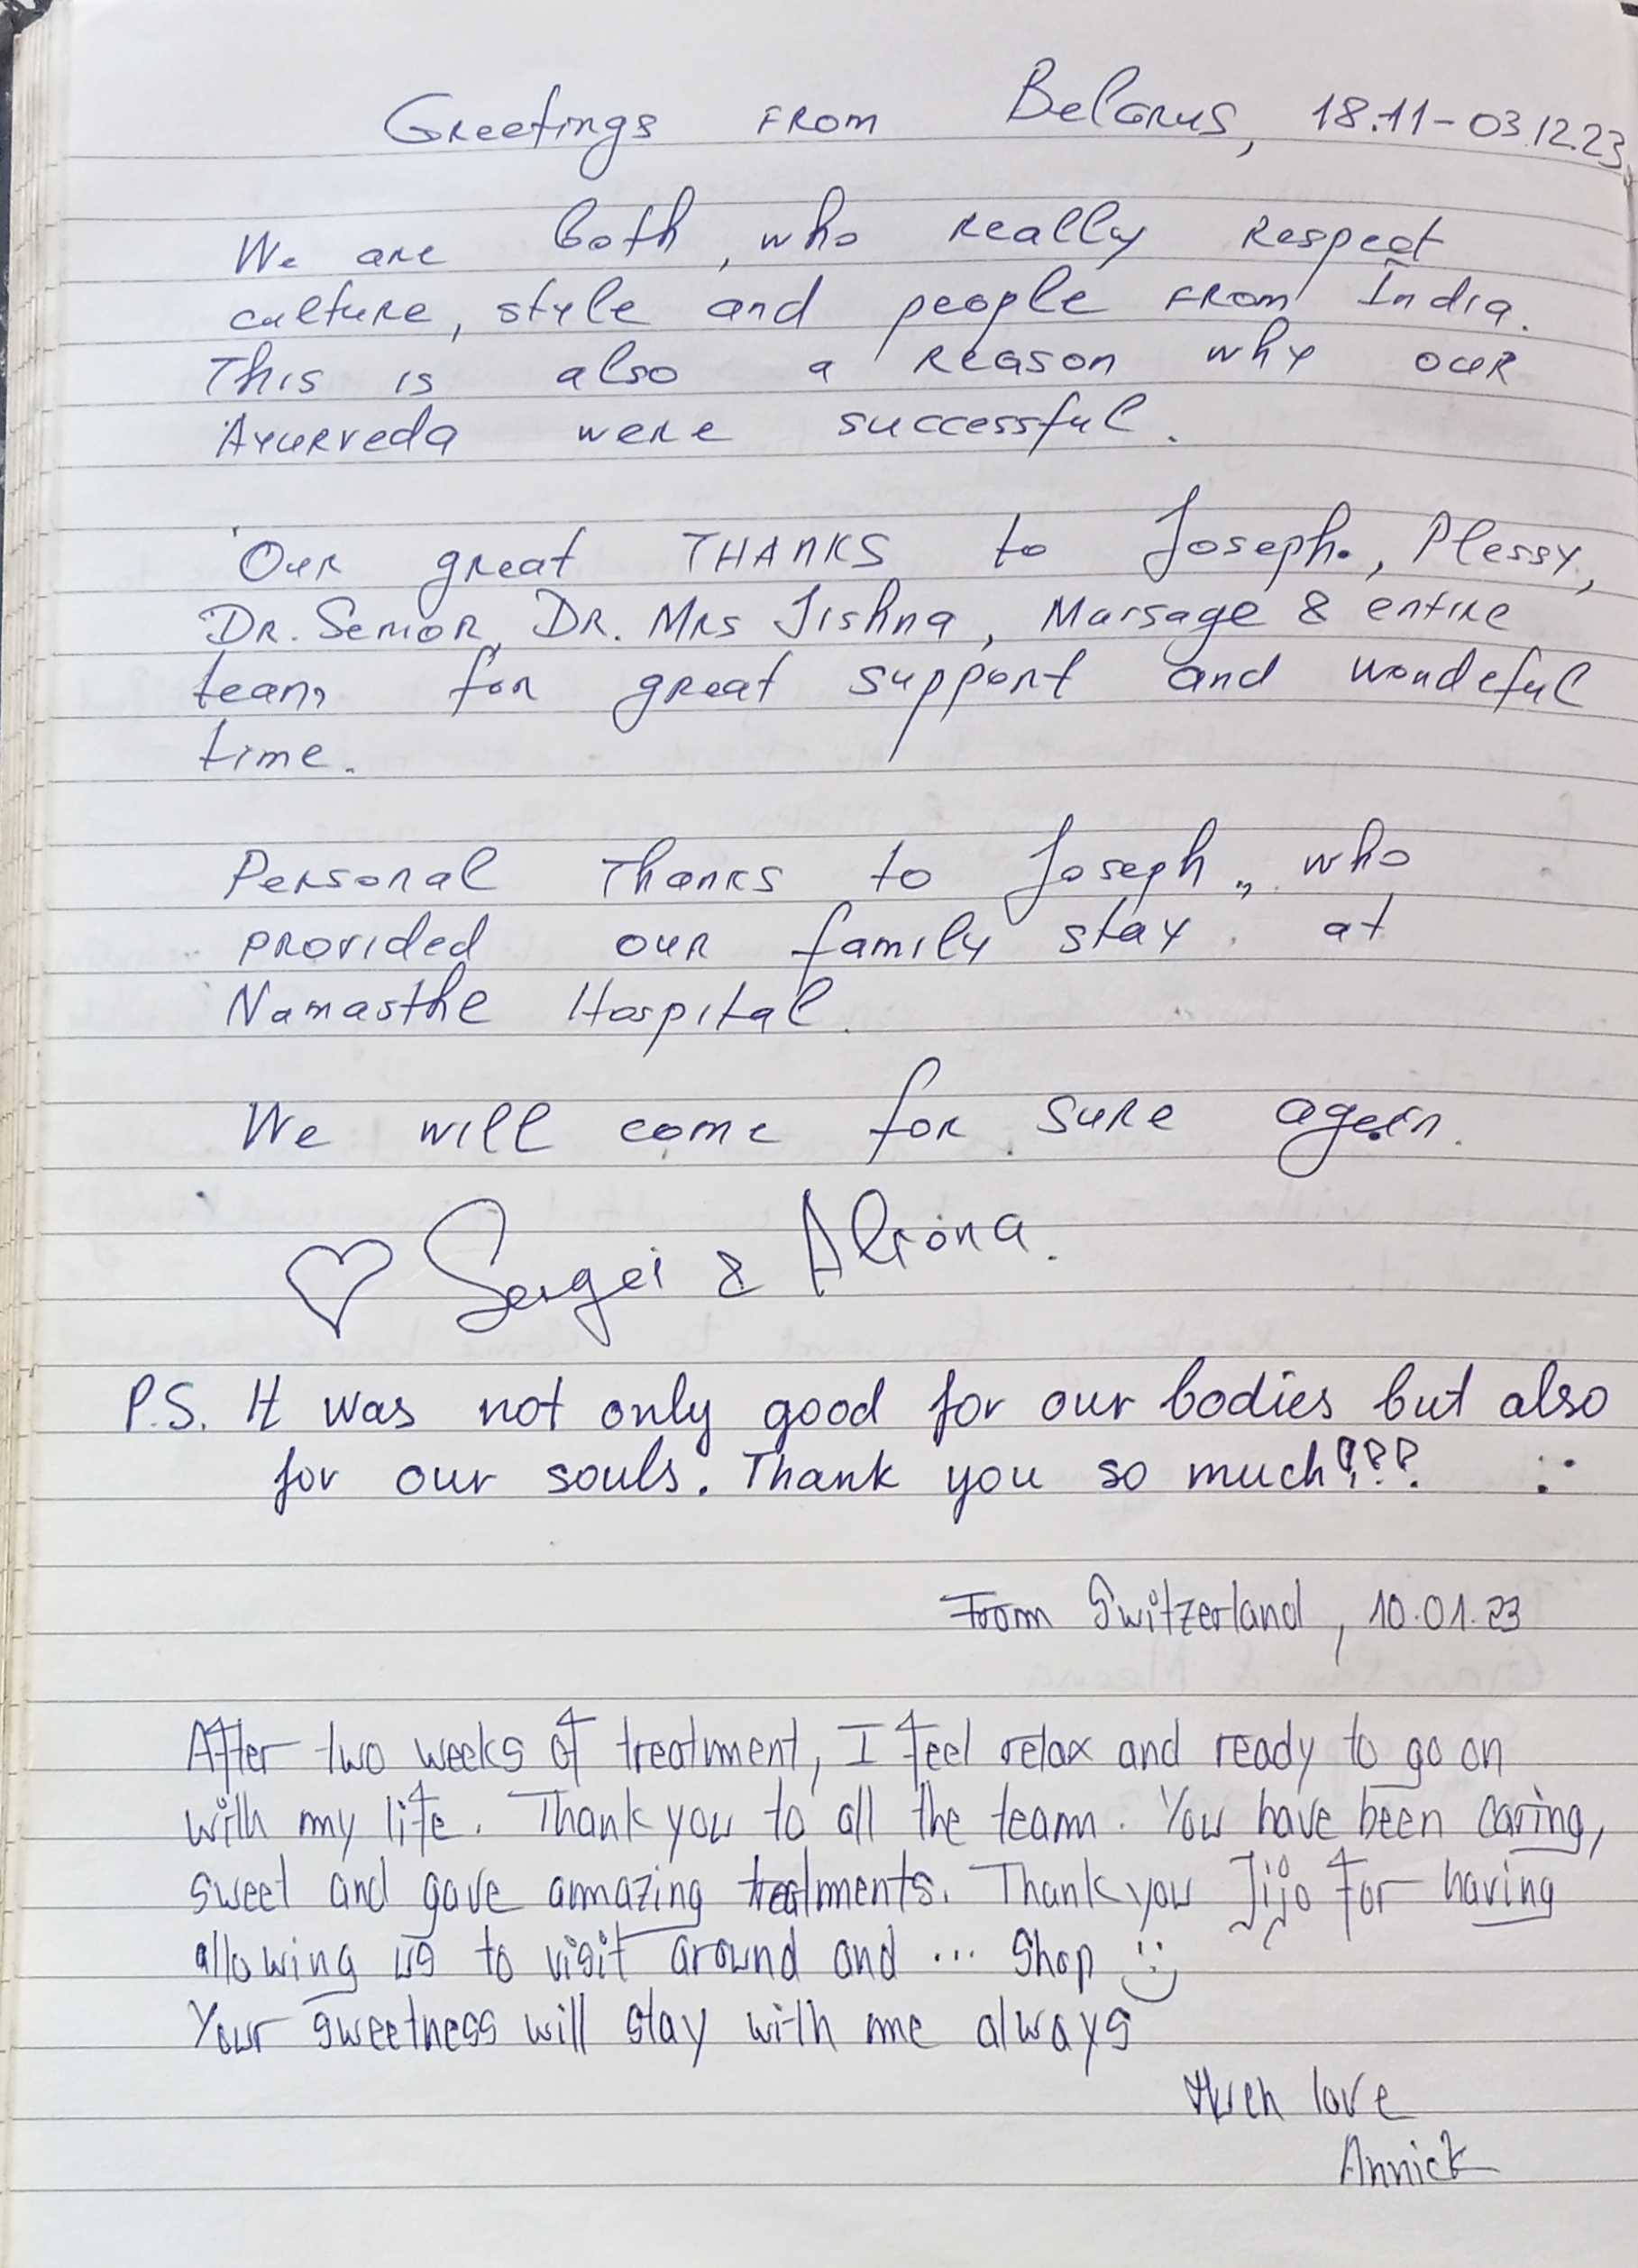 Greetings from Belarus, 18.11-03.12.23
We are both, who really respect
culture, style and people from India.
This is also a reason why our
Ayurveda were successful.
Our great THANKS to Joseph, Plessy,
Dr. Senior, Dr. Mrs Jishna, Massage & entire
team for great support and wondeful
time.
Personal Thanks to Joseph, who
provided our family stay at
Namasthe Hospital.
We will come for sure again.
♡ Sergei & Aliona.
P.S. It was not only good for our bodies but also
for our souls. Thank you so much!!!
From Switzerland, 10.01.23
After two weeks of treatment, I feel relax and ready to go on
with my life. Thank you to all the team. You have been caring,
sweet and gave amazing treatments. Thank you Jijo for having
allowing us to visit around and ... shop :)
Your sweetness will stay with me always
love
Annick